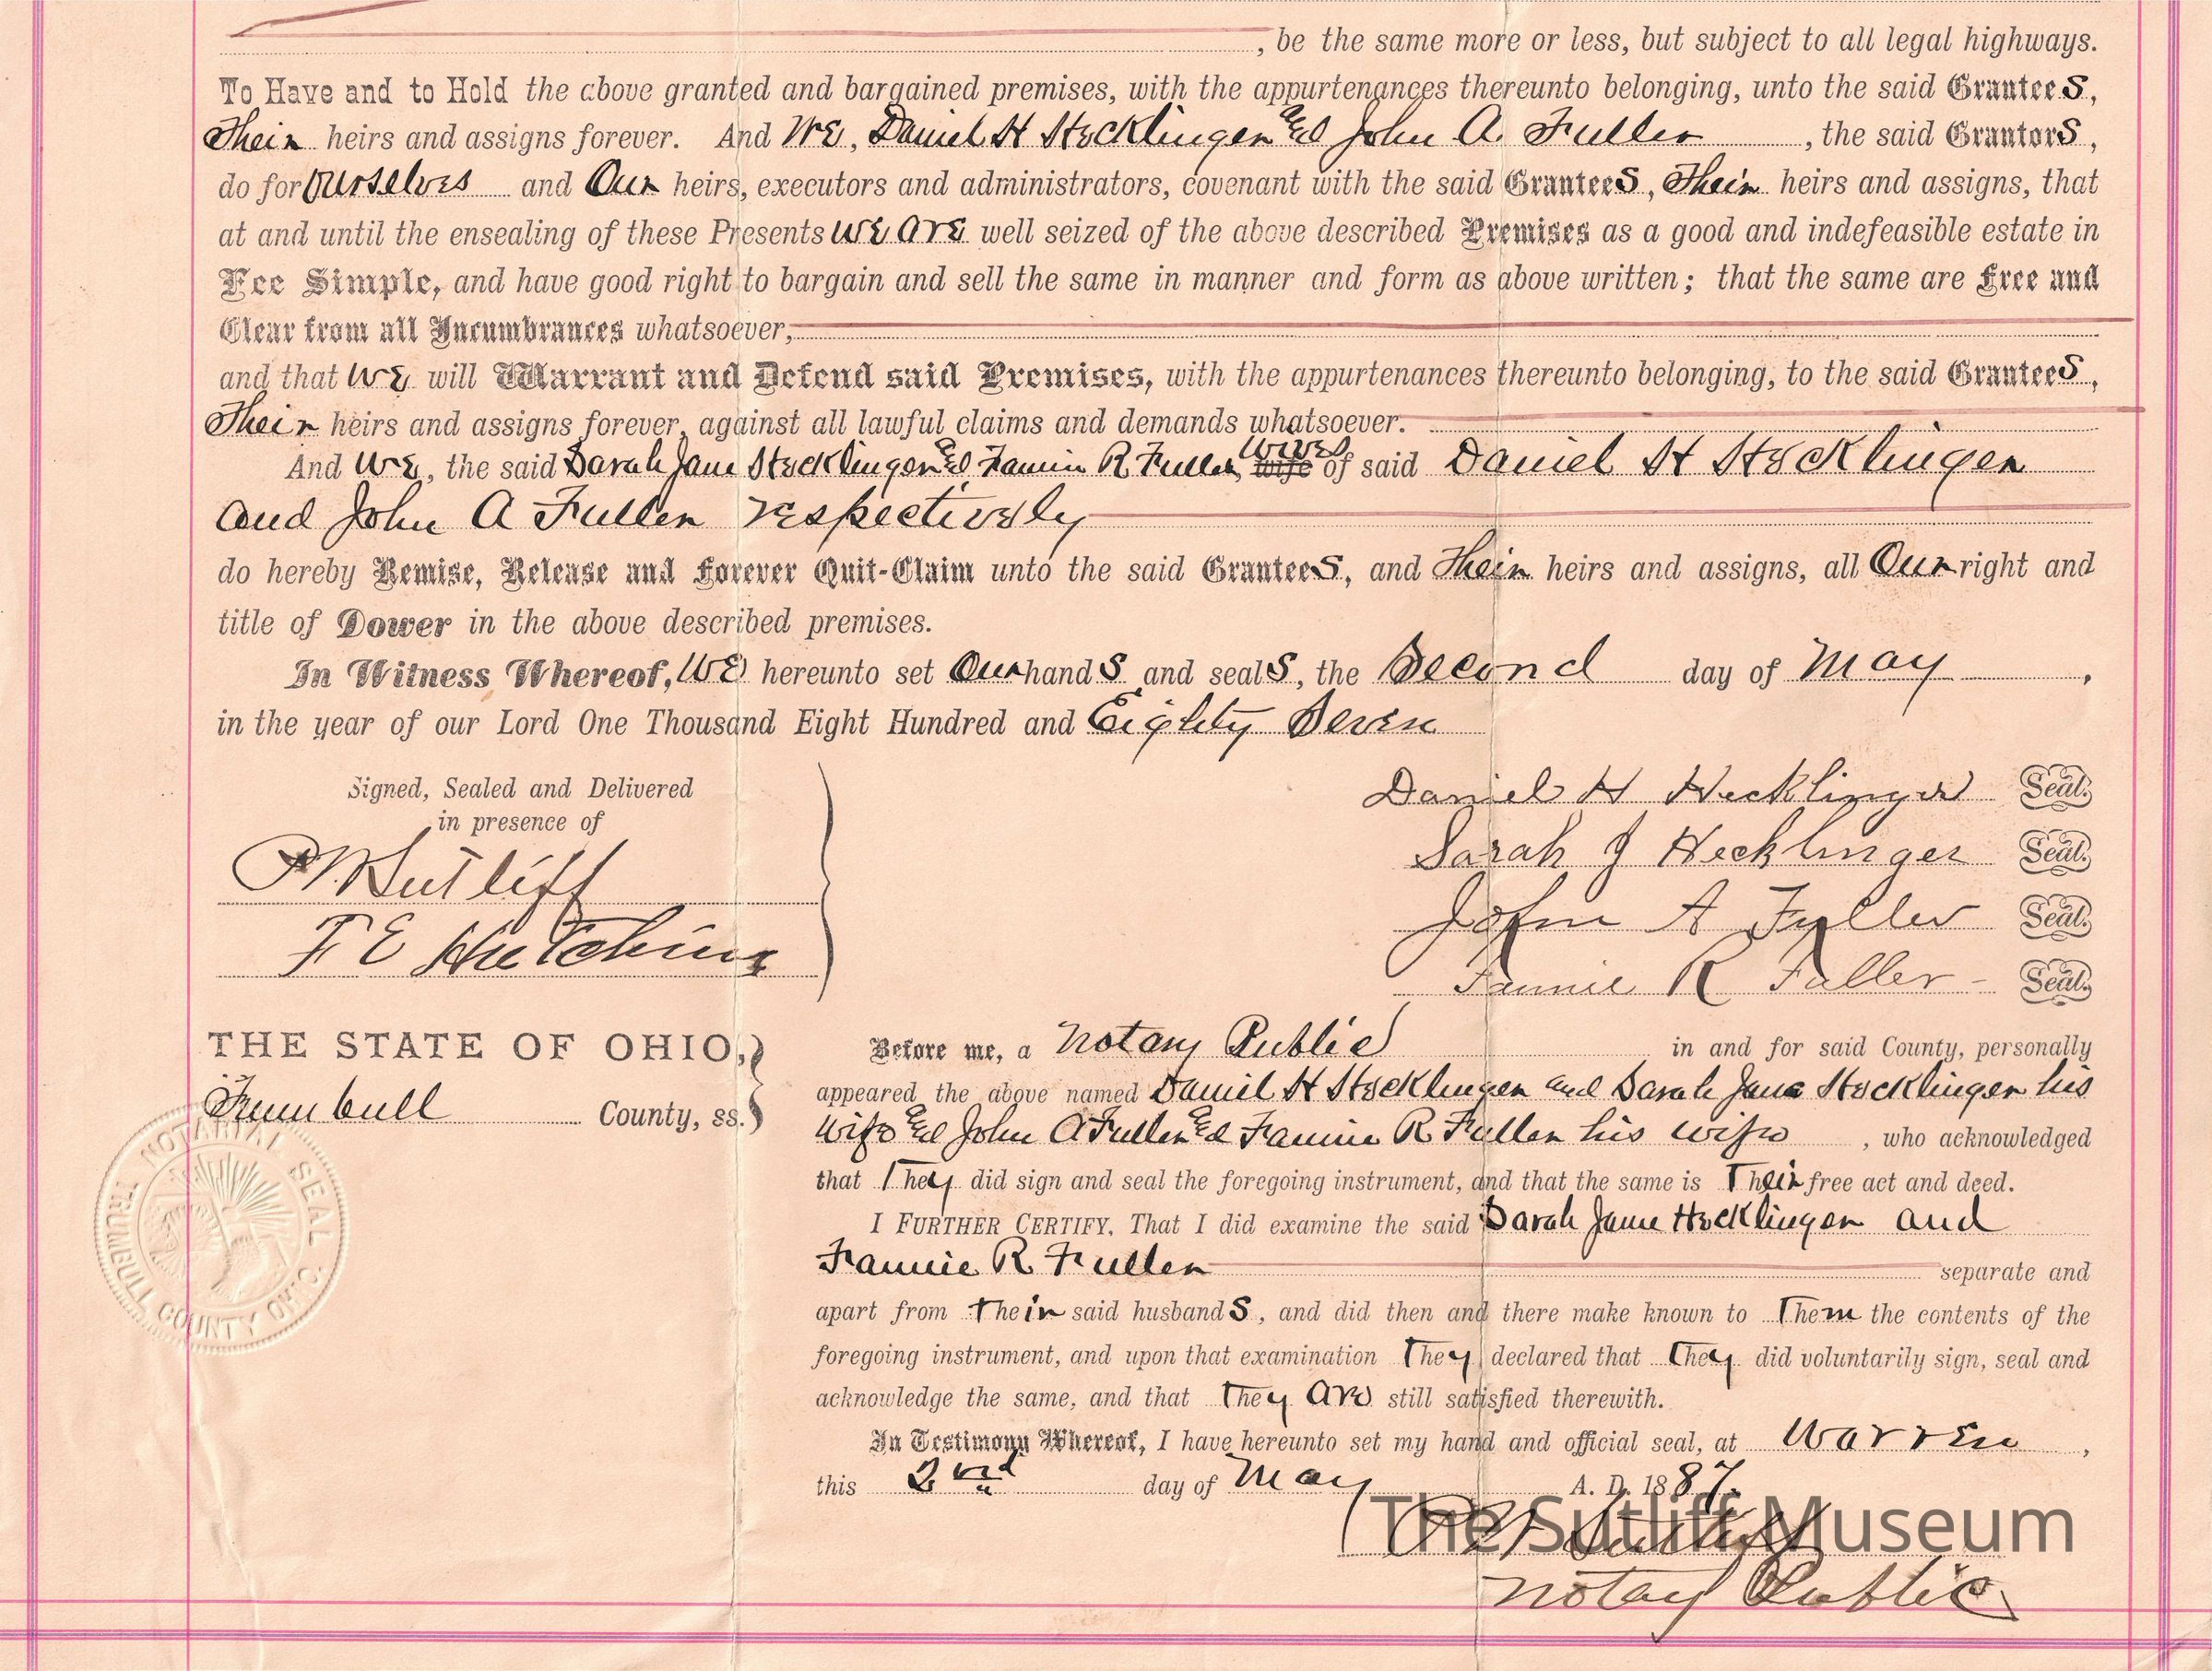 , be the same more or less, but subject to all legal highways.
To Have and to Hold the above granted and bargained premises, with the appurtenances thereunto belonging, unto the said Grantees,
Their heirs and assigns forever. And We, Daniel H Hecklinger and John A Fuller, the said Grantors,
do for Ourselves and Our heirs, executors and administrators, covenant with the said Grantees, Their heirs and assigns, that
at and until the ensealing of these Presents we are well seized of the above described Premises as a good and indefeasible estate in
Fee Simple, and have good right to bargain and sell the same in manner and form as above written; that the same are Free and
Clear from all Incumbrances whatsoever,
and that We will Warrant and Defend said Premises, with the appurtenances thereunto belonging, to the said Grantees,
Their heirs and assigns forever, against all lawful claims and demands whatsoever.
And We, the said Sarah Jane Hecklinger and Fannie R Fuller, wife wives of said Daniel H Hecklinger
and John A Fuller respectively
do hereby Remise, Release and Forever Quit-Claim unto the said Grantees, and Their heirs and assigns, all Our right and
title of Dower in the above described premises.
In Witness Whereof, We hereunto set Our hands and seals, the Second day of May,
in the year of our Lord One Thousand Eight Hundred and Eighty Seven
Signed, Sealed and Delivered
in presence of
P W Sutliff
F E Hutchins
Daniel H Hecklinger Seal.
Sarah J Hecklinger Seal.
John A Fuller Seal.
Fannie R Fuller Seal.
THE STATE OF OHIO,
Trumbull County, ss.
NOTARIAL SEAL
TRUMBULL COUNTY OHIO.
Before me, a Notary Public in and for said County, personally
appeared the above named Daniel H Hecklinger and Sarah Jane Hecklinger his
wife and John A Fuller and Fannie R Fuller his wife, who acknowledged
that They did sign and seal the foregoing instrument, and that the same is Their free act and deed.
I FURTHER CERTIFY, That I did examine the said Sarah Jane Hecklinger and
Fannie R Fuller separate and
apart from Their said husbands, and did then and there make known to Them the contents of the
foregoing instrument, and upon that examination They declared that They did voluntarily sign, seal and
acknowledge the same, and that They are still satisfied therewith.
In Testimony Whereof, I have hereunto set my hand and official seal, at Warren,
this 2nd day of May A. D. 1887.
P W Sutliff
The Sutliff Museum
Notary Public